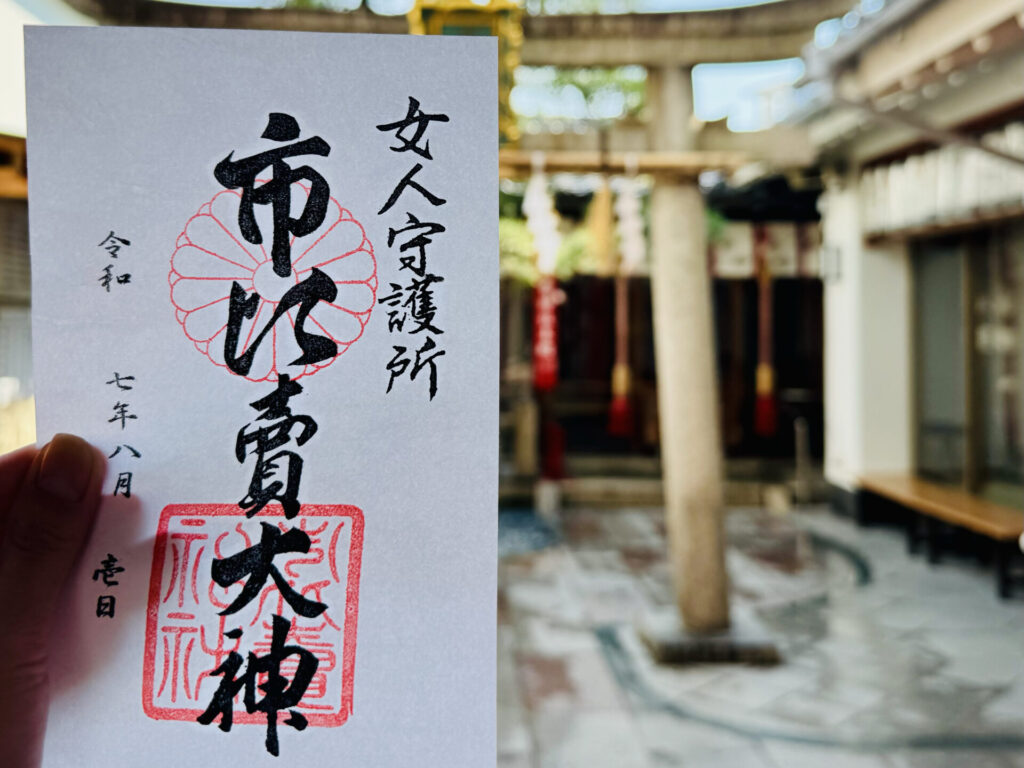 女人守護所
市比賣大神
令和 七年 八月 壱日